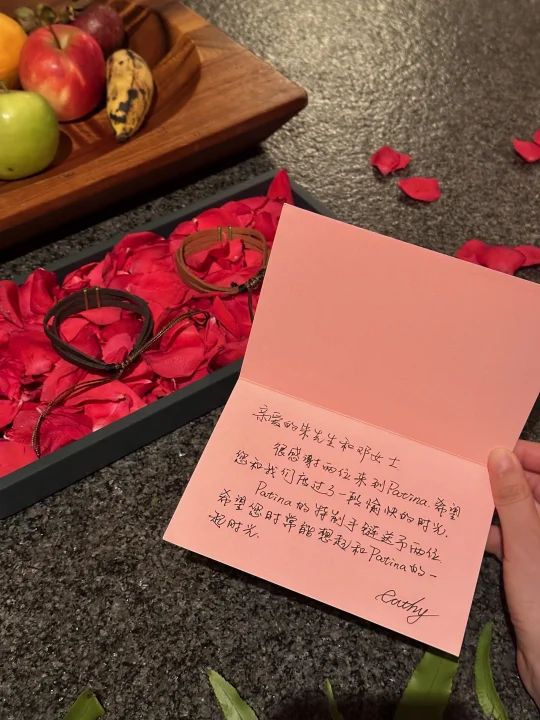 亲爱的朱先生和邓女士
很感谢两位来到Patina.希望
您和我们度过了一段愉快的时光.
Patina的特制手链送予两位.
希望您时常能想起和Patina的一
起时光.
Cathy